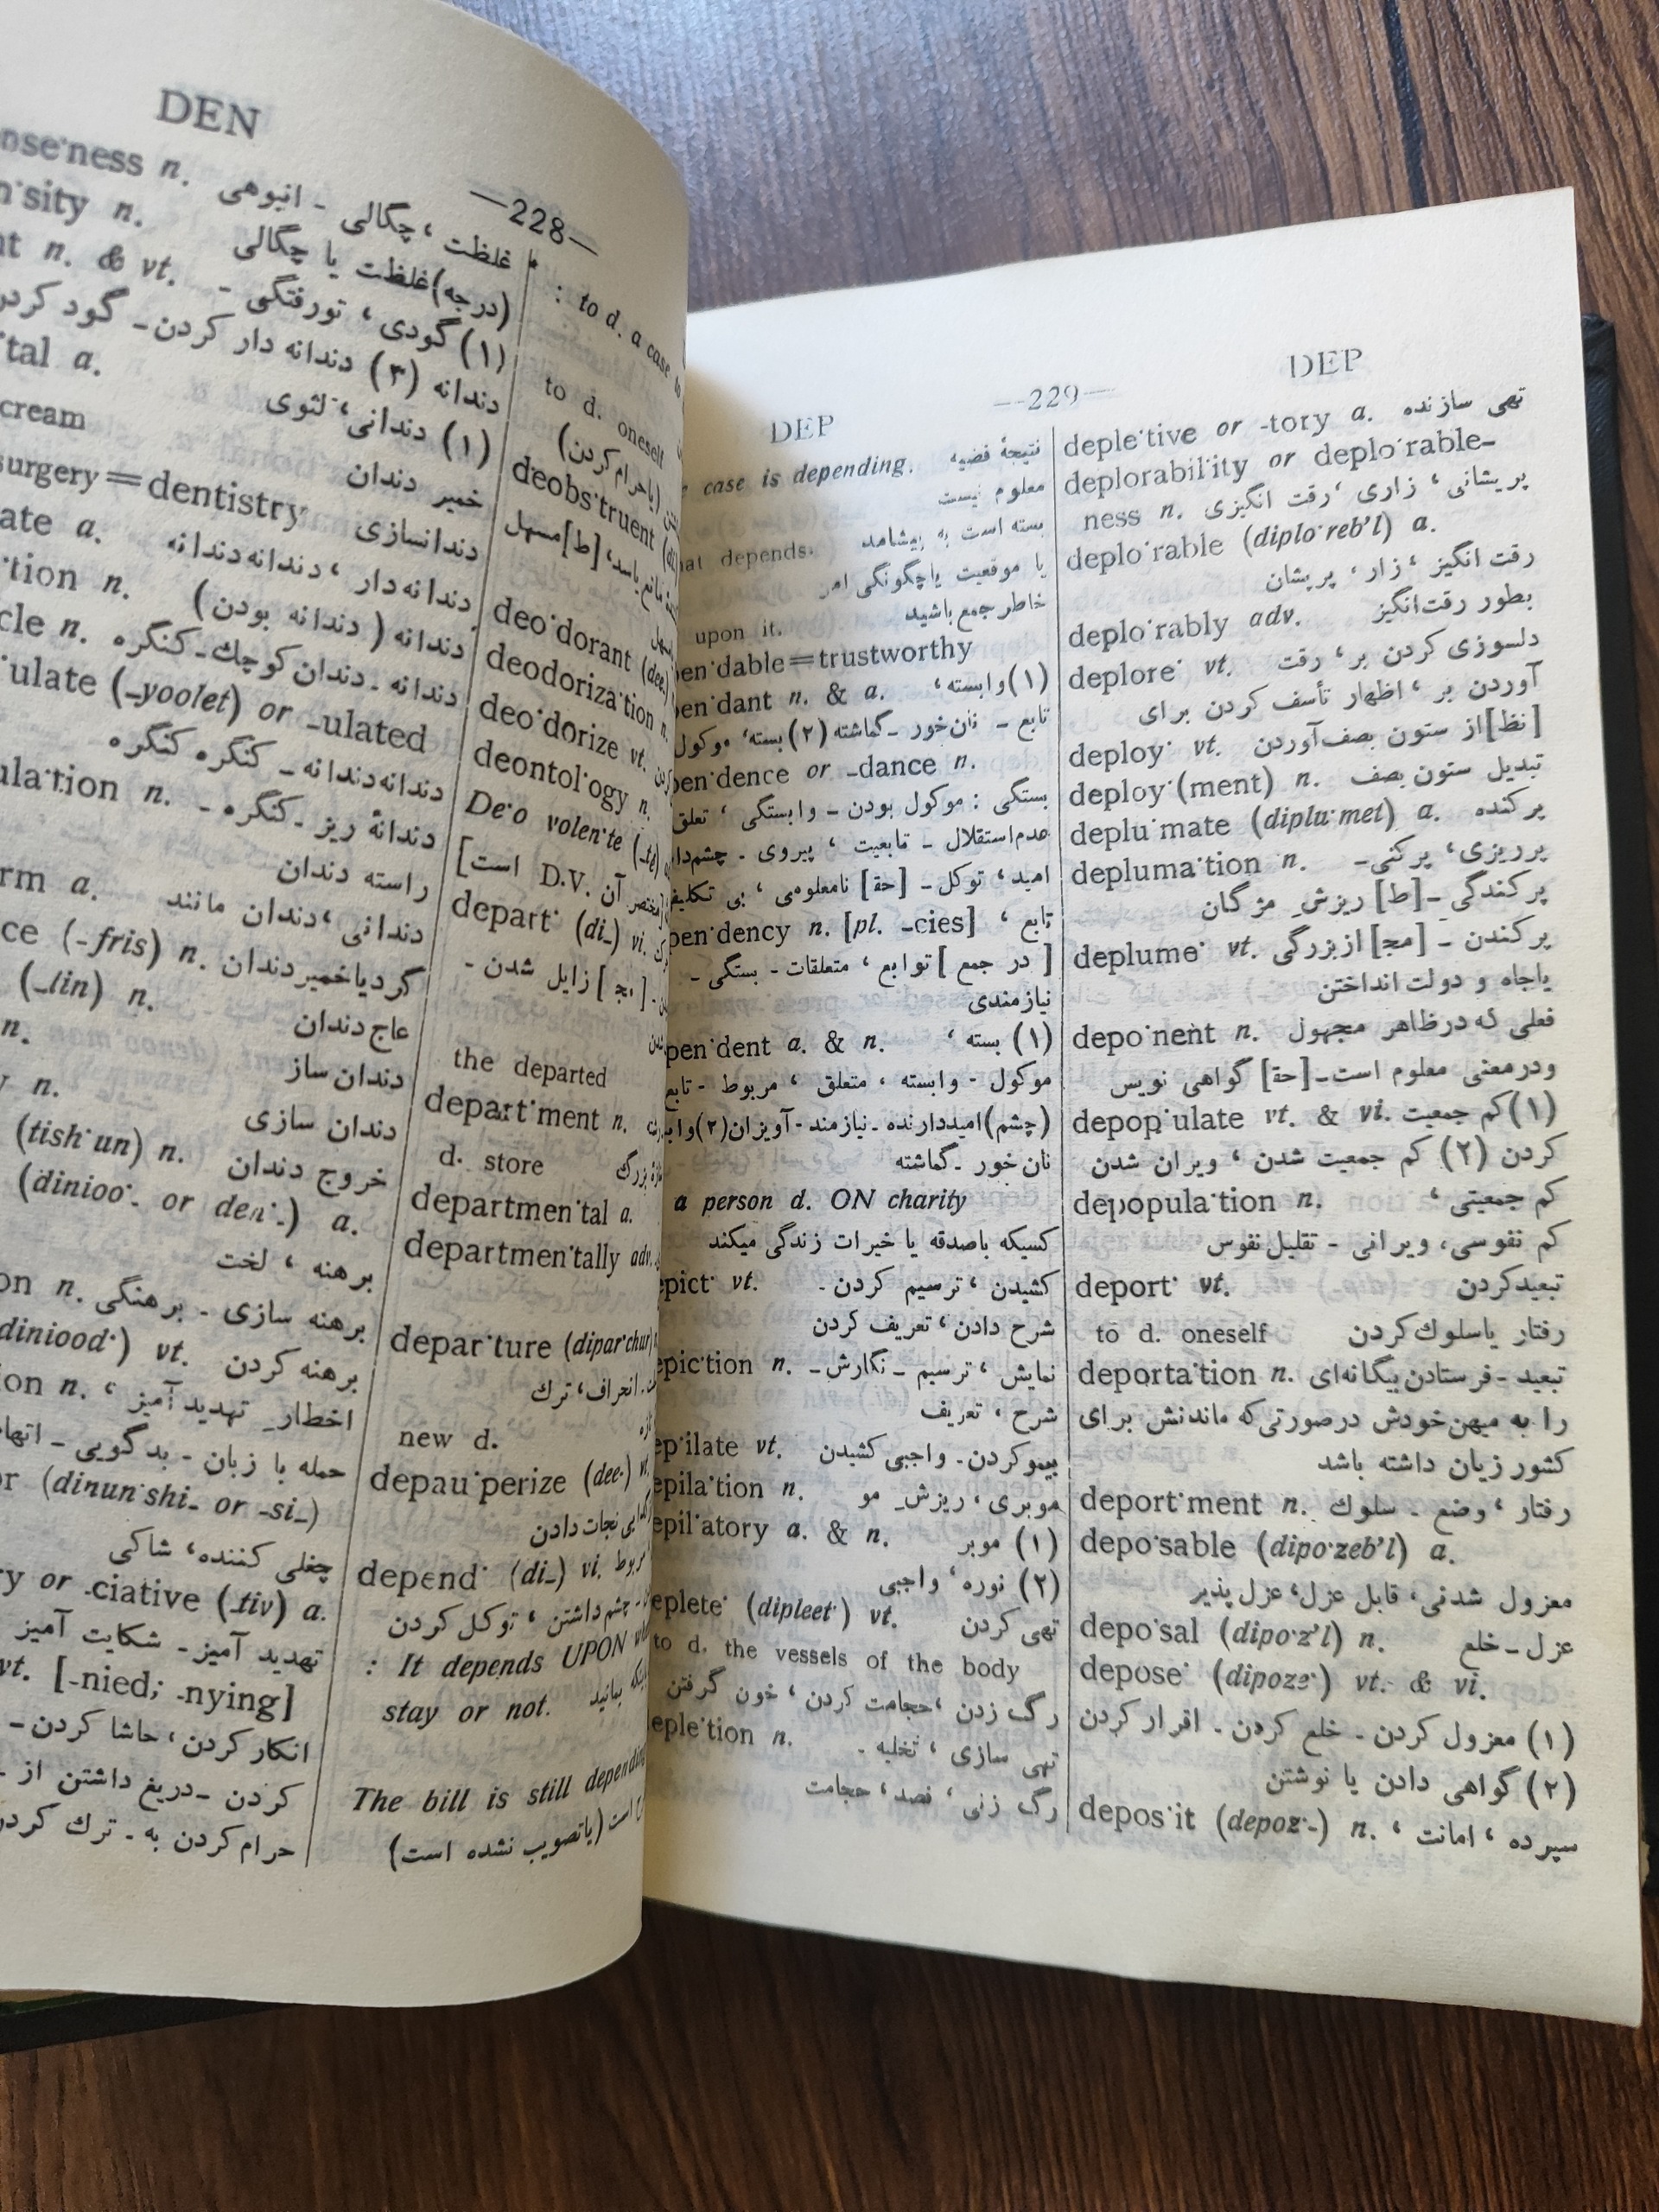 DEN
—228—
n.
غلظت ، چگالی - انبوهی
n.
(درجه) غلظت یا چگالی
n. & vt.
(۱) گودی ، تورفتگی -
دندانه (۳) دندانه دار کردن- گود کردن
a.
(۱) دندانی ، لثوی
cream
خمیر دندان
surgery=dentistry
دندانسازی
a.
دندانه‌دار ، دندانه‌دندانه
n.
دندانه ( دندانه بودن)
n.
دندانه - دندان کوچك-کنگره
(-yoolet) or -ulated
دندانه‌دندانه - کنگره کنگره
n.
دندانهٔ ریز - کنگره -
راسته دندان
a.
دندانی ، دندان مانند
(-fris) n.
گردیاخمیردندان
(-lin) n.
عاج دندان
n.
دندان ساز
n.
دندان سازی
(tish·un) n.
خروج دندان
(dinioo·- or den·-) a.
برهنه ، لخت
n.
برهنه سازی - برهنگی
diniood·) vt.
برهنه کردن
n.
اخطار تهدید آمیز ،
حمله با زبان - بدگویی -
(dinun·shi- or -si-)
چغلی کننده ، شاکی
or -ciative (-tiv) a.
تهدید آمیز - شکایت آمیز
vt. [-nied; -nying]
انکار کردن ، حاشا کردن -
کردن - دریغ داشتن از -
حرام کردن به - ترك کردن
: to d. a case
to d. oneself
(یاحرام کردن)
deobs·truent
[ط] مسهل
deo·dorant (dee-)
deodoriza·tion n.
deo·dorize vt.
deontol·ogy n.
De·o volen·te (-te)
[مختصر آن D.V. است]
depart· (di-) vi.
زایل شدن -
the departed
depart·ment n.
d. store
بزرگ
departmen·tal a.
departmen·tally adv.
depar·ture (dipar·chur)
انحراف ، ترك
new d.
depau·perize (dee-) vt.
نجات دادن
depend· (di-) vi.
چشم داشتن ، توکل کردن
: It depends UPON
stay or not.
بمانید
The bill is still depending
(یاتصویب نشده است)
DEP
—229—
DEP
case is depending.
نتیجهٔ قضیه
معلوم نیست
depends.
بسته است به پیشامد
یا موقعیت یاچگونگی امر
upon it.
خاطر جمع باشید
pen·dable=trustworthy
pen·dant n. & a.
(۱) وابسته ،
تابع - نان‌خور - گماشته (۲) بسته ، موکول
pen·dence or -dance n.
بستگی : موکول بودن - وابستگی ، تعلق
عدم‌استقلال - تابعیت ، پیروی -
امید ، توکل - [حق] نامعلومی ، بی تکلیفی
pen·dency n. [pl. -cies]
تابع ،
[ در جمع ] توابع ، متعلقات - بستگی -
نیازمندی
pen·dent a. & n.
(۱) بسته ،
موکول - وابسته ، متعلق ، مربوط - تابع
(چشم) امیددارنده - نیازمند - آویزان (۲)
نان خور - گماشته
a person d. ON charity
کسیکه باصدقه یا خیرات زندگی میکند
epict· vt.
کشیدن ، ترسیم کردن -
شرح دادن ، تعریف کردن
epic·tion n.
نمایش ، ترسیم - نگارش -
شرح ، تعریف
ep·ilate vt.
بیموکردن - واجبی کشیدن
epila·tion n.
موبری ، ریزش مو
epil·atory a. & n.
(۱) موبر
(۲) نوره ، واجبی
eplete· (dipleet·) vt.
تهی کردن
to d. the vessels of the body
رگ زدن ، حجامت کردن ، خون گرفتن
eple·tion n.
تهی سازی ، تخلیه -
رگ زنی ، فصد ، حجامت
deple·tive or -tory a.
تهی سازنده
deplorabil·ity or deplo·rable-
ness n.
پریشانی ، زاری ، رقت انگیزی
deplo·rable (diplo·reb'l) a.
رقت انگیز ، زار ، پریشان
deplo·rably adv.
بطور رقت‌انگیز
deplore· vt.
دلسوزی کردن بر ، رقت
آوردن بر ، اظهار تأسف کردن برای
deploy· vt.
[نظ] از ستون بصف‌آوردن
deploy·(ment) n.
تبدیل ستون بصف
deplu·mate (diplu·met) a.
پرکنده
depluma·tion n.
پرریزی ، پرکنی-
پرکندگی -[ط] ریزش مژگان
deplume· vt.
پرکندن - [مج] ازبزرگی
یاجاه و دولت انداختن
depo·nent n.
فعلی که درظاهر مجهول
ودرمعنی معلوم است-[حق] گواهی نویس
depop·ulate vt. & vi.
(۱) کم جمعیت
کردن (۲) کم جمعیت شدن ، ویران شدن
depopula·tion n.
کم جمعیتی ،
کم نفوسی ، ویرانی - تقلیل نفوس
deport· vt.
تبعیدکردن
to d. oneself
رفتار یاسلوك‌کردن
deporta·tion n.
تبعید - فرستادن بیگانه‌ای
را به میهن‌خودش درصورتی‌که ماندنش برای
کشور زیان داشته باشد
deport·ment n.
رفتار ، وضع - سلوك
depo·sable (dipo·zeb'l) a.
معزول شدنی ، قابل عزل ، عزل پذیر
depo·sal (dipo·z'l) n.
عزل - خلع
depose· (dipoze·) vt. & vi.
(۱) معزول کردن - خلع کردن - اقرار کردن
(۲) گواهی دادن یا نوشتن
depos·it (depoz·-) n.
سپرده ، امانت ،